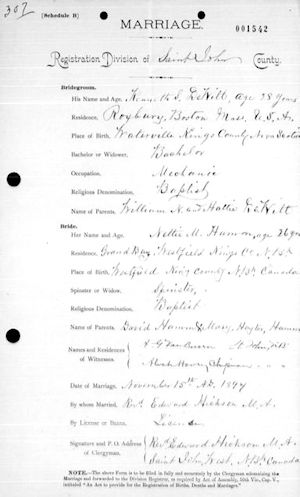 307
[Schedule B]
MARRIAGE.
001542
Registration Division of Saint John County.
Bridegroom.
His Name and Age, S. DeWitt, age 28 years
Residence, Roxbury, Boston Mass. U. S. A.
Place of Birth, Waterville Kings County Nova Scotia
Bachelor or Widower, Bachelor
Occupation, Mechanic
Religious Denomination, Baptist
Name of Parents, William H. and Hattie DeWitt
Bride.
Her Name and Age, Nettie M. Hamm, age 26
Residence, Grand Bay, Westfield Kings Co. N.B.
Place of Birth, Westfield Kings County N.B. Canada
Spinster or Widow, Spinster
Religious Denomination, Baptist
Name of Parents, David Hamm & Mary Hamm
Names and Residences of Witnesses.
St. John, N.B.
Date of Marriage, November 15th A.D. 1899
By whom Married, Revd. Edward Hickson M.A.
By License or Banns, License
Signature and P. O. Address of Clergyman. Rev. Edward Hickson M.A.
Saint John, West, N.B. Canada
NOTE.—The above Form is to be filled in fully and accurately by the Clergyman solemnizing the
Marriage and forwarded to the Division Registrar, as required by Act of Assembly, 50th Vic., Cap. V.,
intituled "An Act to provide for the Registration of Births, Deaths and Marriages."